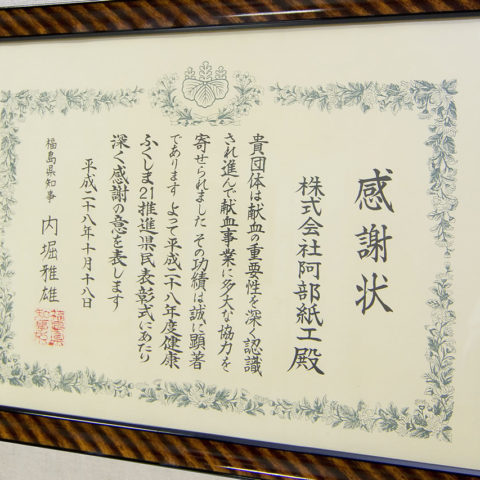 感謝状
株式会社阿部紙工殿
貴団体は献血の重要性を深く認識
され進んで献血事業に多大な協力を
寄せられました その功績は誠に顕著
であります よって平成二十八年度健康
ふくしま21推進県民表彰式にあたり
深く感謝の意を表します
平成二十八年十月十八日
福島県知事 内堀雅雄